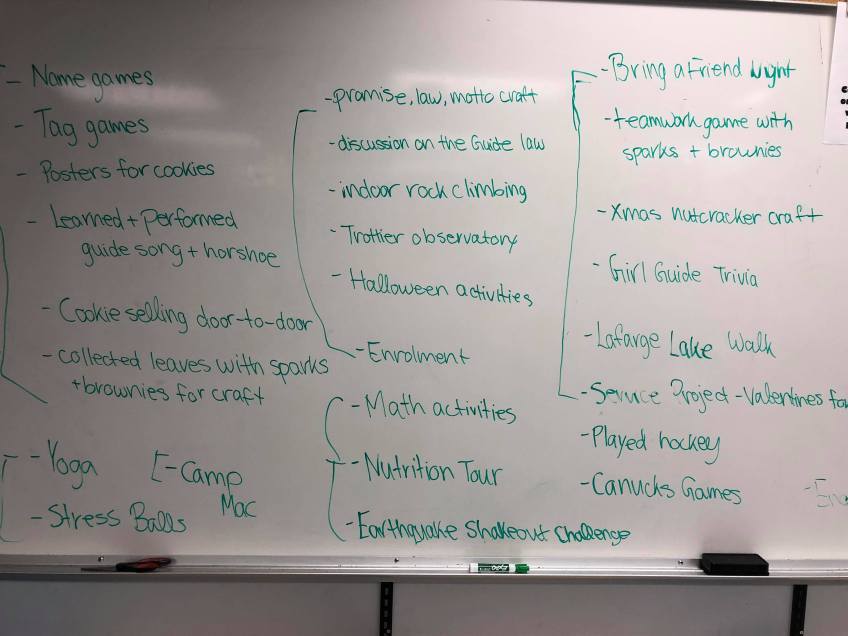 - Name games
- Tag games
- Posters for cookies
- Learned + performed
guide song + horshoe
- Cookie selling door-to-door
- collected leaves with sparks
+ brownies for craft
- Yoga
- Stress Balls
- Camp
Mac
- promise, law, motto craft
- discussion on the Guide law
- indoor rock climbing
- Trottier observatory
- Halloween activities
- Enrolment
- Math activities
- Nutrition Tour
- Earthquake Shakeout Challenge
- Bring a Friend Night
- teamwork game with
sparks + brownies
- Xmas nutcracker craft
- Girl Guide Trivia
- Lafarge Lake Walk
- Service Project - Valentines for
- Played hockey
- Canucks Games
EXPO